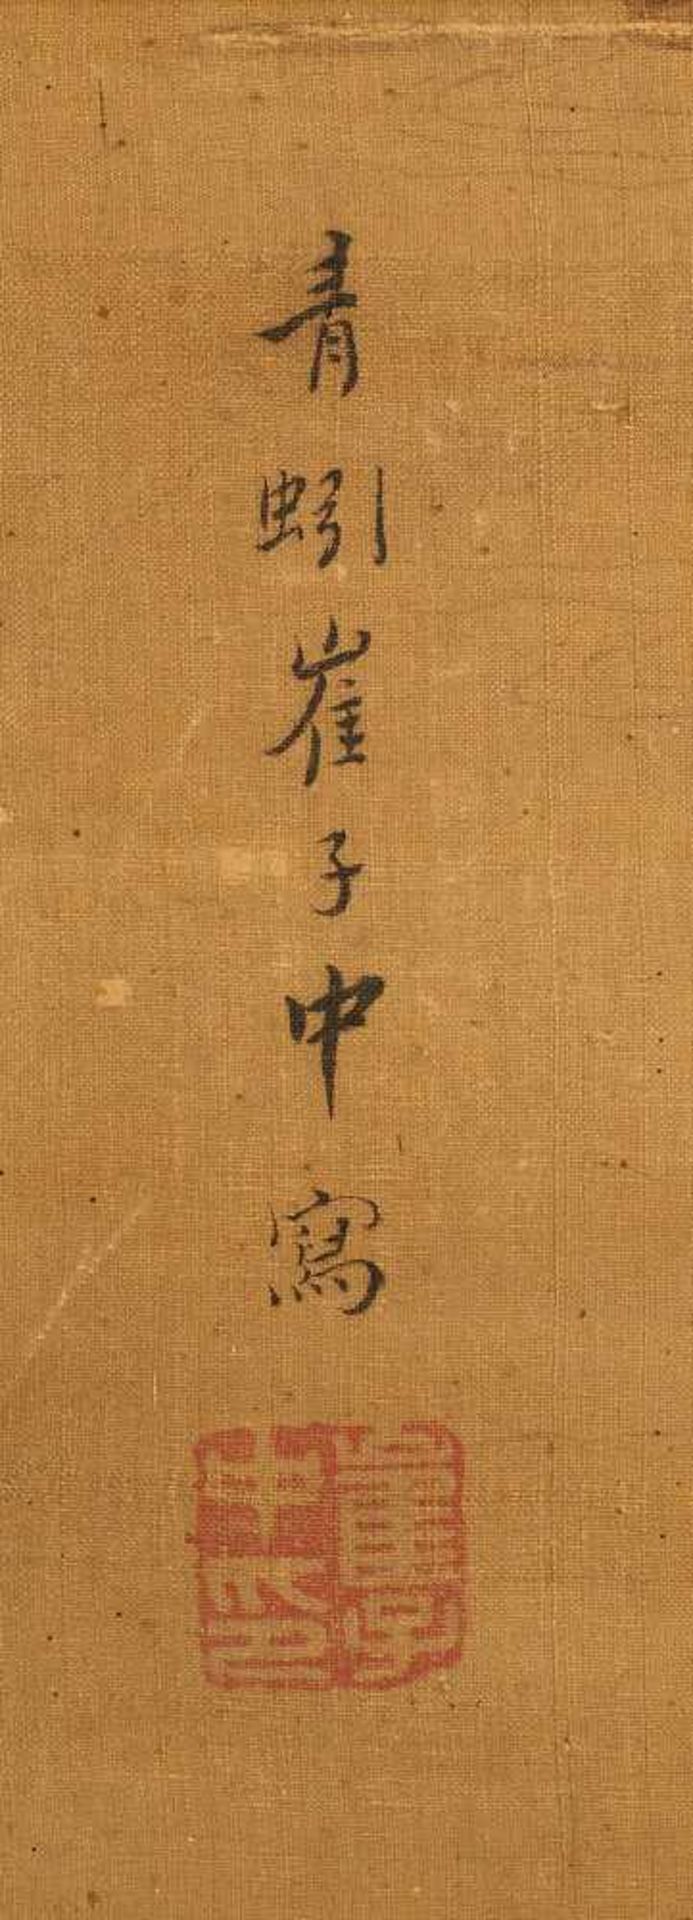 青蚓崔子中寫